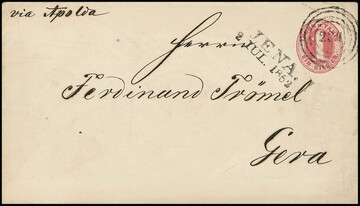 via Apolda
Herrn
JENA.
2 JUL. 1862
Ferdinand Trömel
Gera